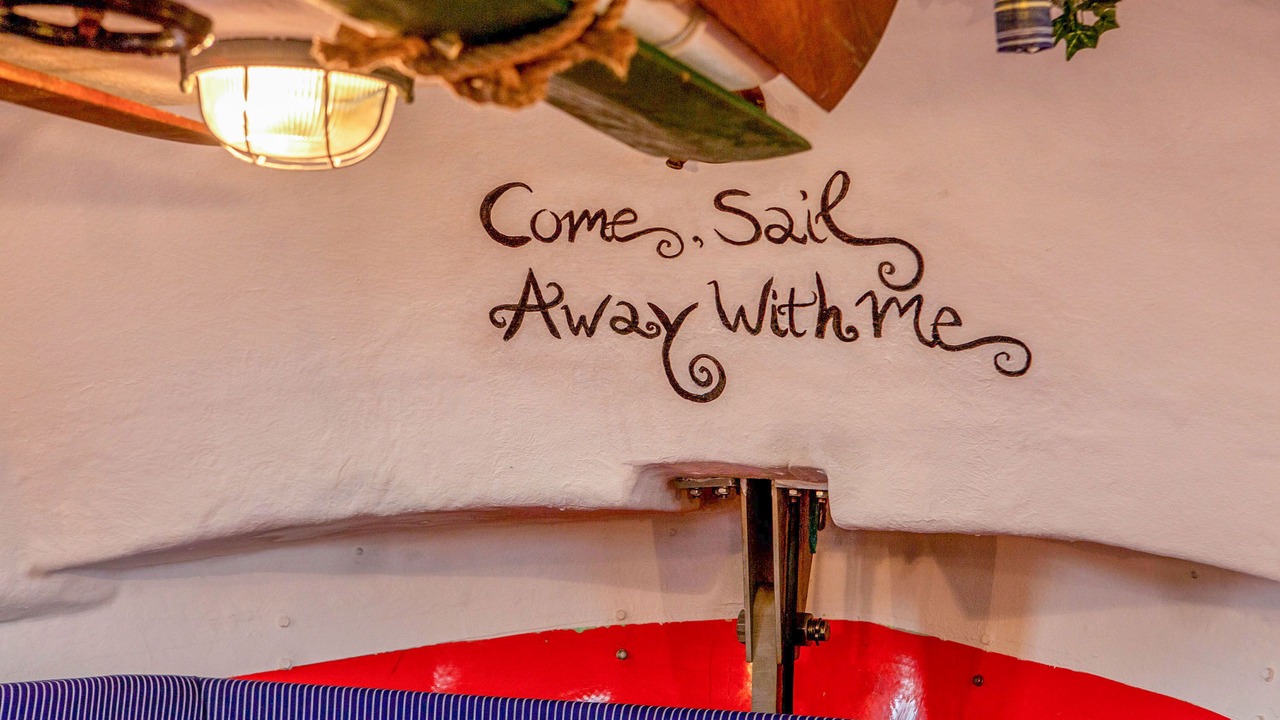 Come, Sail
Away With Me